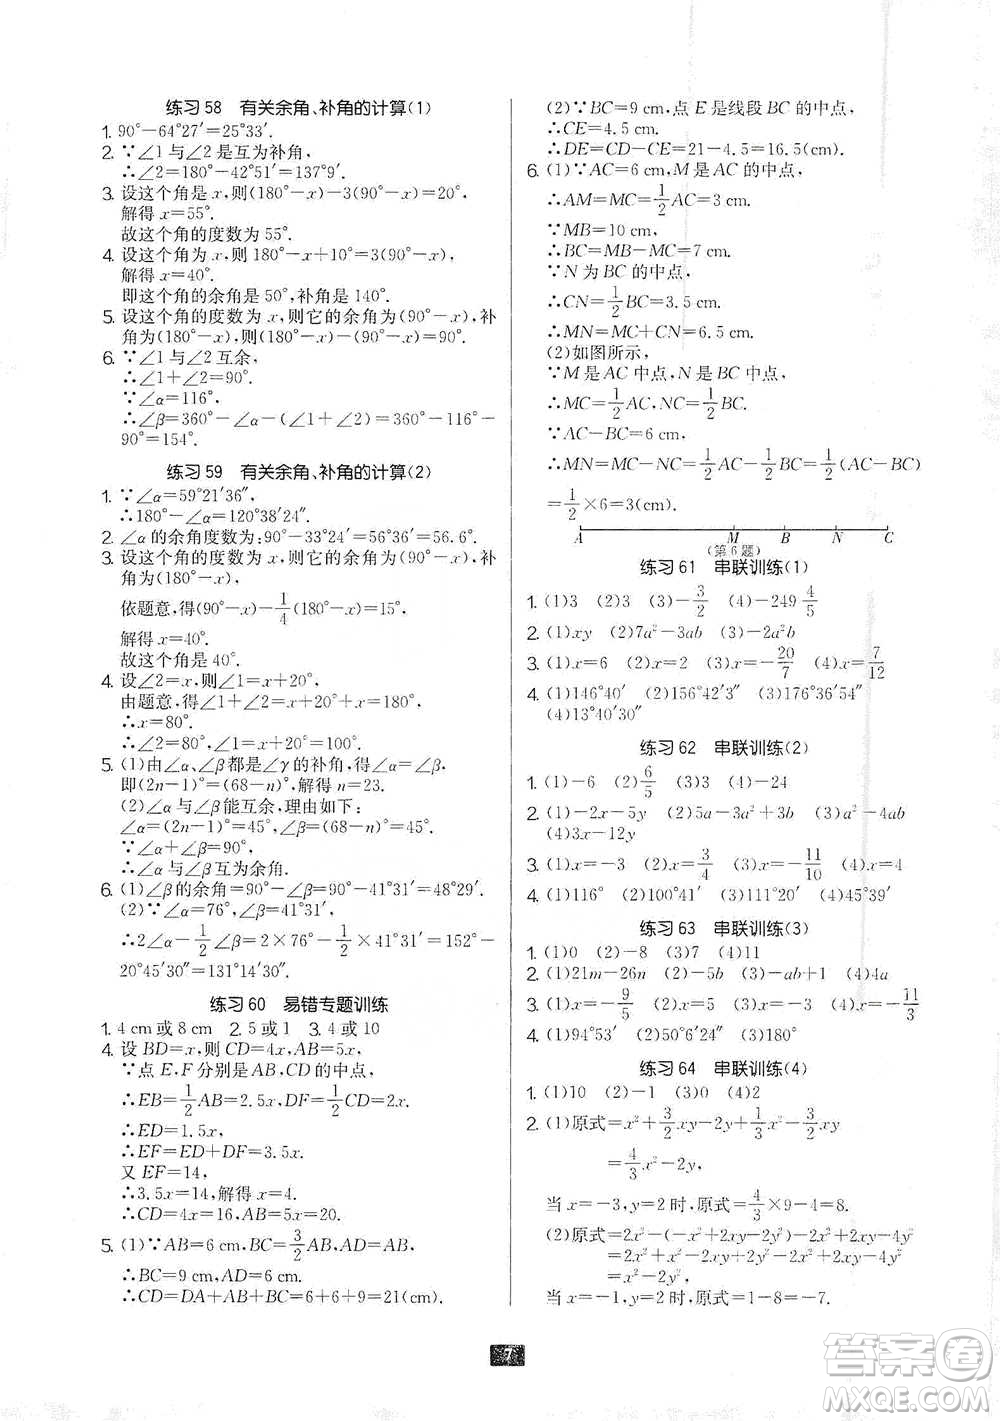 练习 58 有关余角、补角的计算(1)
1. 90°−64°27′=25°33′.
2. ∵∠1 与∠2 是互为补角,
∴∠2=180°−42°51′=137°9′.
3. 设这个角是 x,则(180°−x)−3(90°−x)=20°.
解得 x=55°.
故这个角的度数为 55°.
4. 设这个角为 x,则 180°−x+10°=3(90°−x),
解得 x=40°.
即这个角的余角是 50°,补角是 140°.
5. 设这个角的度数为 x,则它的余角为(90°−x),补
角为(180°−x),则(180°−x)−(90°−x)=90°.
6. ∵∠1 与∠2 互余,
∴∠1+∠2=90°.
∵∠α=116°,
∴∠β=360°−∠α−(∠1+∠2)=360°−116°−
90°=154°.
练习 59 有关余角、补角的计算(2)
1. ∵∠α=59°21′36″,
∴180°−∠α=120°38′24″.
2. ∠α 的余角度数为:90°−33°24′=56°36′=56.6°.
3. 设这个角的度数为 x,则它的余角为(90°−x),补
角为(180°−x),
依题意,得(90°−x)−1/4(180°−x)=15°,
解得 x=40°.
故这个角是 40°.
4. 设∠2=x,则∠1=x+20°,
由题意,得∠1+∠2=x+20°+x=180°.
∴x=80°.
∴∠2=80°,∠1=80°+20°=100°.
5. (1)由∠α、∠β都是∠γ的补角,得∠α=∠β,
即(2n−1)°=(68−n)°,解得 n=23.
(2)∠α 与∠β能互余,理由如下:
∠α=(2n−1)°=45°,∠β=(68−n)°=45°,
∠α+∠β=90°.
∴∠α 与∠β互为余角.
6. (1)∠β的余角=90°−∠β=90°−41°31′=48°29′.
(2)∵∠α=76°,∠β=41°31′,
∴2∠α−1/2∠β=2×76°−1/2×41°31′=152°−
20°45′30″=131°14′30″.
练习 60 易错专题训练
1. 4 cm 或 8 cm 2. 5 或 1 3. 4 或 10
4. 设 BD=x,则 CD=4x,AB=5x,
∵点 E、F 分别是 AB,CD 的中点,
∴EB=1/2AB=2.5x,DF=1/2CD=2x.
∴ED=1.5x,
∴EF=ED+DF=3.5x.
又 EF=14,
∴3.5x=14,解得 x=4.
∴CD=4x=16,AB=5x=20.
5. (1)∵AB=6 cm,BC=3/2AB,DA=AB,
∴BC=9 cm,AD=6 cm.
∴CD=DA+AB+BC=6+6+9=21(cm).
(2)∵BC=9 cm,点 E 是线段 BC 的中点,
∴CE=4.5 cm.
∴DE=CD−CE=21−4.5=16.5(cm).
6. (1)∵AC=6 cm,M 是 AC 的中点,
∴AM=MC=1/2AC=3 cm.
∵MB=10 cm,
∴BC=MB−MC=7 cm.
∵N 为 BC 的中点,
∴CN=1/2BC=3.5 cm.
∴MN=MC+CN=6.5 cm.
(2)如图所示,
∵M 是 AC 中点,N 是 BC 中点,
∴MC=1/2AC,NC=1/2BC.
∵AC−BC=6 cm,
∴MN=MC−NC=1/2AC−1/2BC=1/2(AC−BC)
=1/2×6=3(cm)
A M B N C
(第 6 题)
练习 61 串联训练(1)
1. (1)3 (2)3 (3)−3/2 (4)−249 4/5
2. (1)xy (2)7a²−3ab (3)−2a²b
3. (1)x=6 (2)x=2 (3)x=−20/7 (4)x=7/12
4. (1)146°40′ (2)156°42′3″ (3)176°36′54″
(4)13°40′30″
练习 62 串联训练(2)
1. (1)−6 (2)6/5 (3)3 (4)−24
2. (1)−2x−5y (2)5a−3a²+3 (3)a²−4ab
(4)3x−12y
3. (1)x=−3 (2)x=3/4 (3)x=−11/10 (4)x=4
4. (1)116° (2)100°41′ (3)111°20′ (4)45°39′
练习 63 串联训练(3)
1. (1)0 (2)−8 (3)7 (4)11
2. (1)21m−26n (2)−5b (3)−ab+1 (4)4a
3. (1)x=−9/5 (2)x=5 (3)x=9 (4)x=−11/3
4. (1)94°53′ (2)50°6′24″ (3)97°30′
练习 64 串联训练(4)
1. (1)10 (2)−1 (3)0 (4)2
2. (1)原式=x²+3/2xy−2y+1/3x²−3/2xy
=4/3x²−2y,
当 x=−3,y=2 时,原式=4/3×9−4=8.
(2)原式=2x²−(−x²+2xy−2y²)−2x²+2xy−4y²
=2x²+x²−2xy+2y²−2x²+2xy−4y²
=x²−2y²
当 x=−1,y=−2 时,原式=1−8=−7.
7
答案圈
MXQE.COM